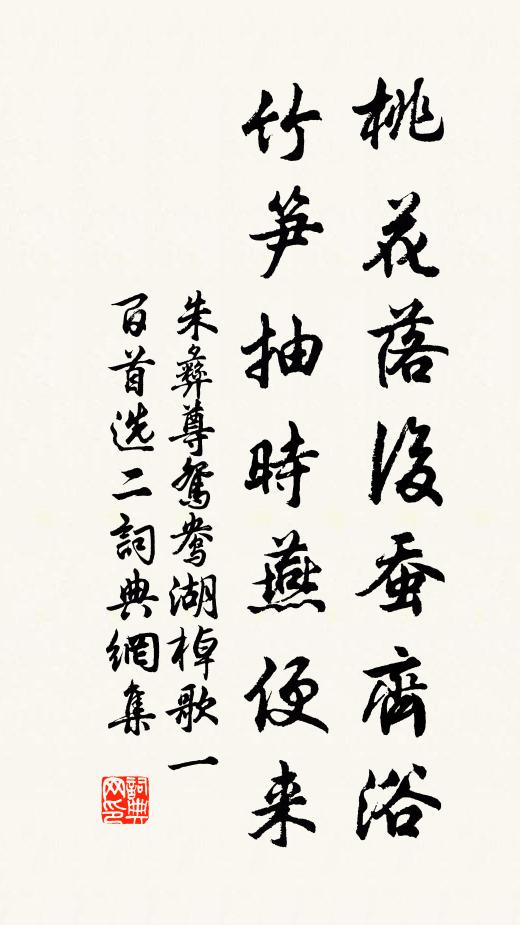 桃花落後蚕齊浴
竹笋抽時燕便来
朱彝尊鴛鴦湖棹歌一
百首选二詞典網集
詞典網印